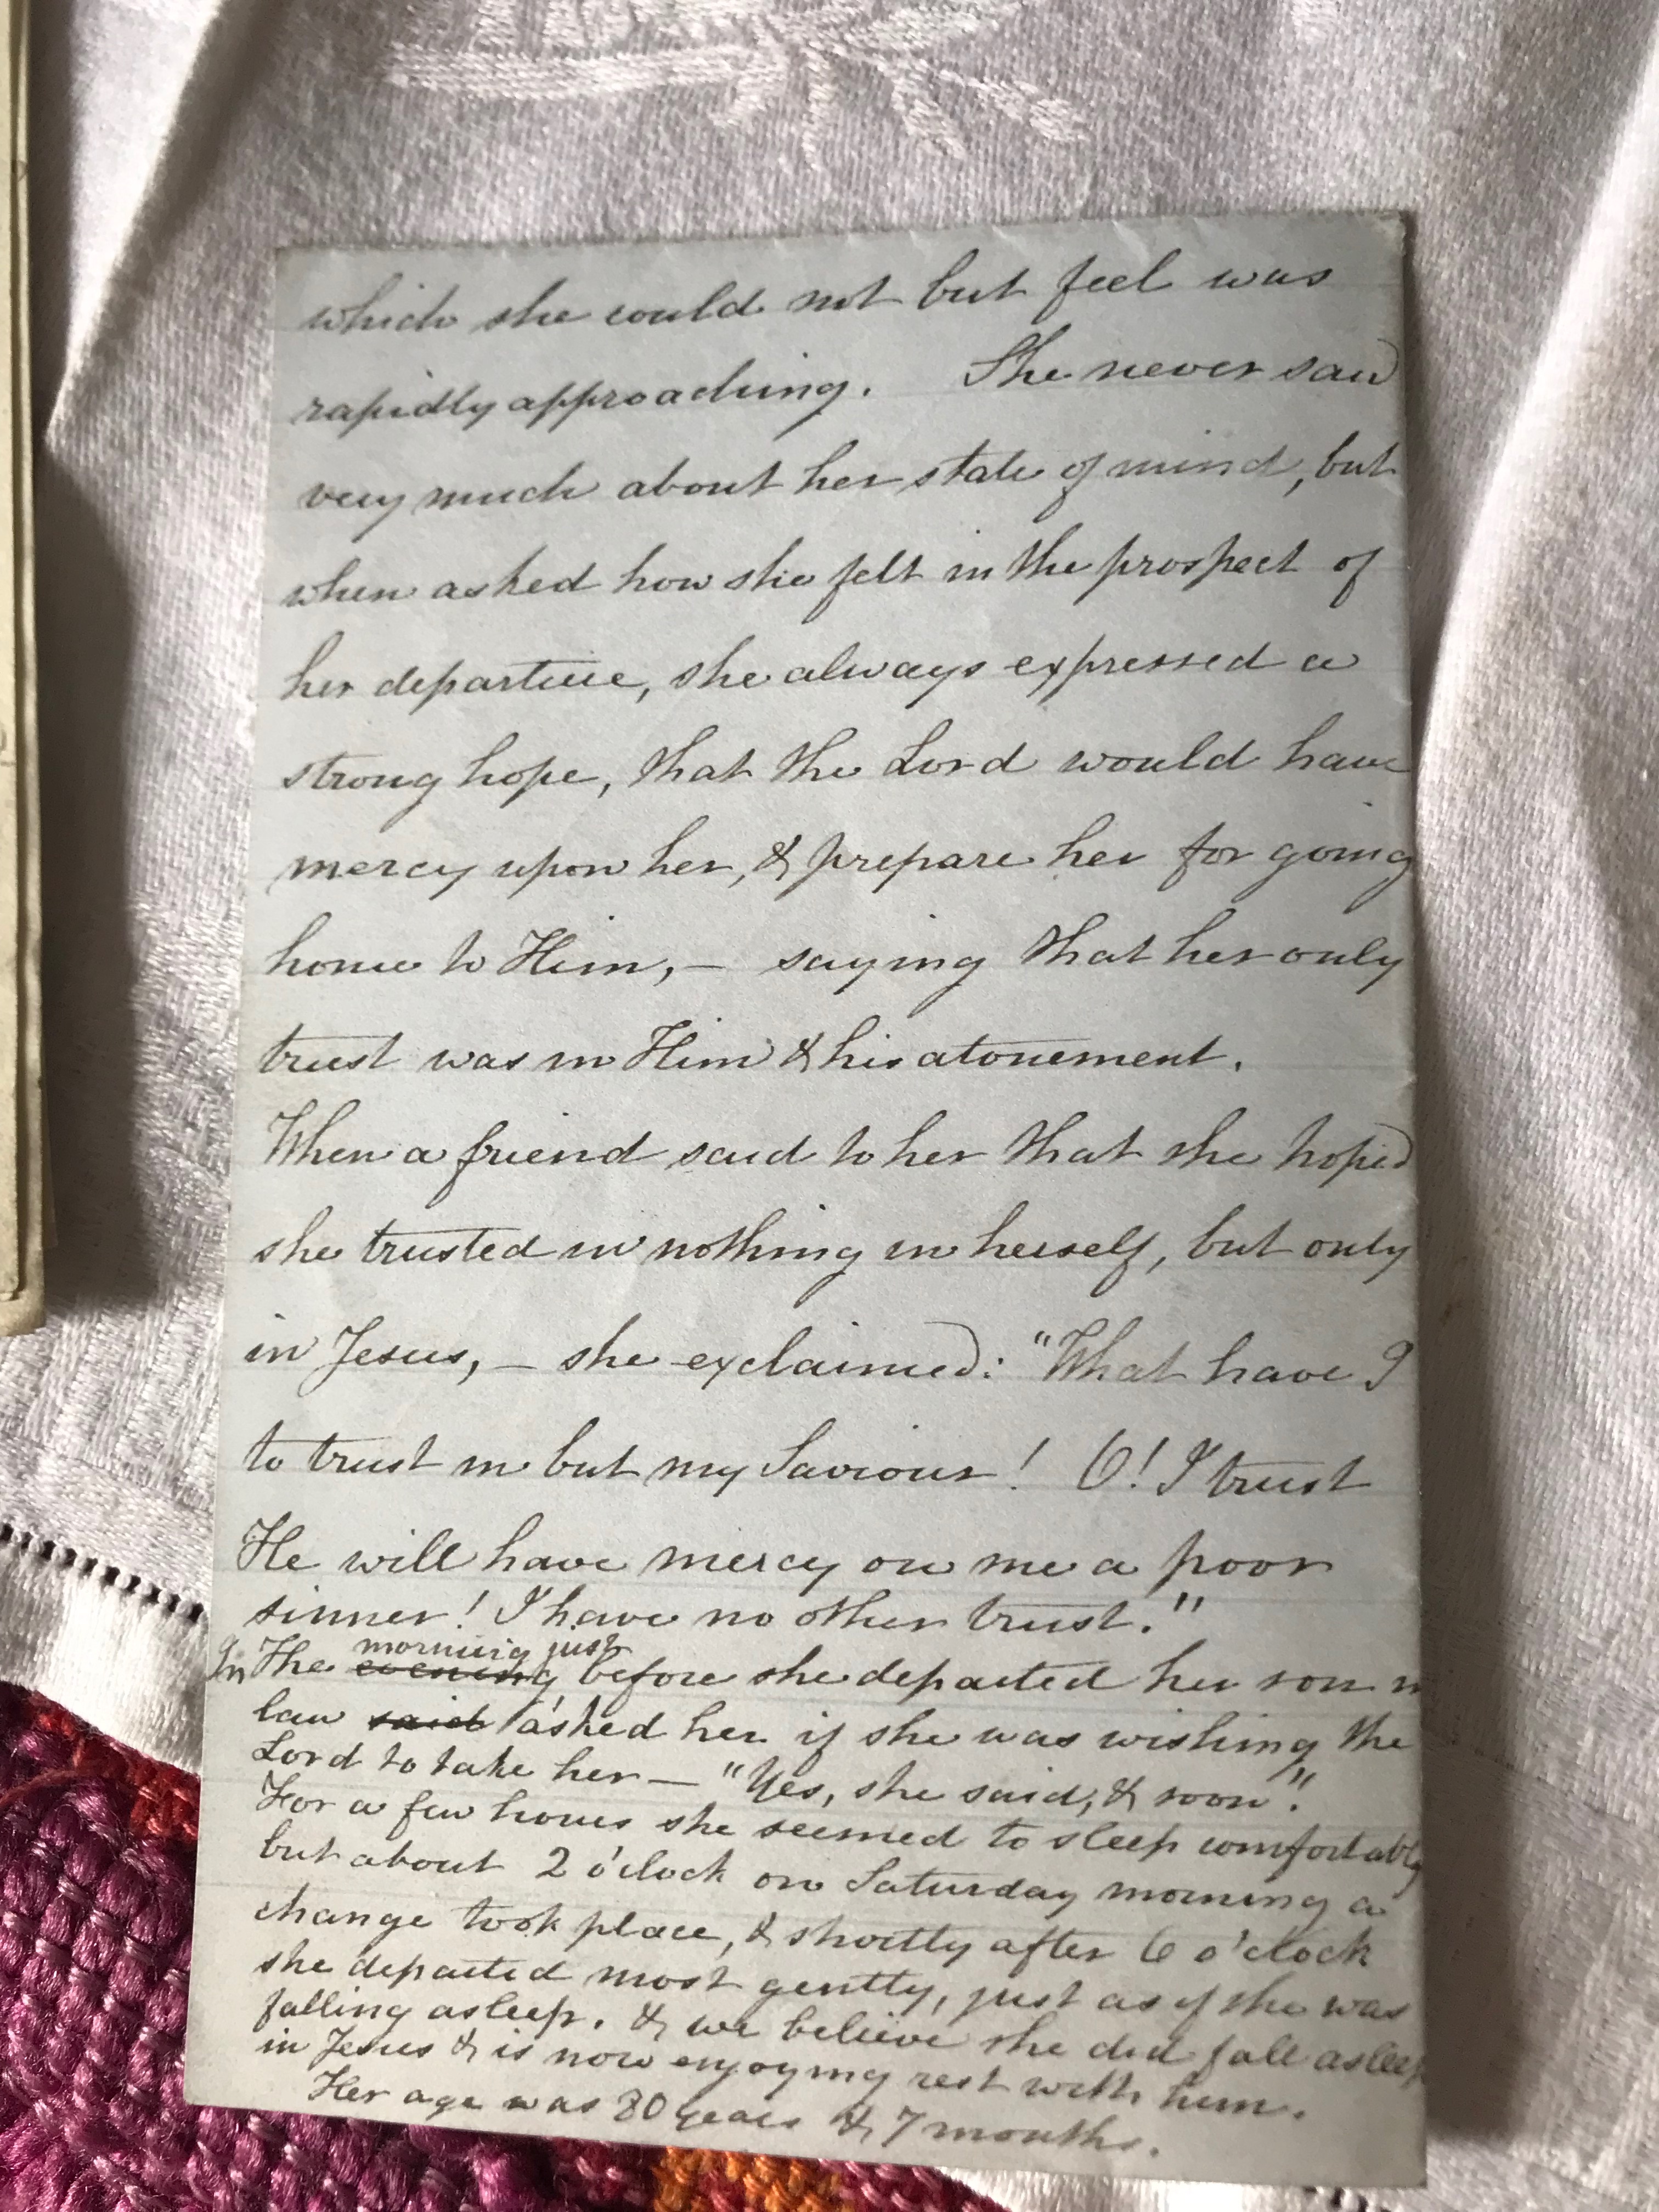 which she could not but feel was
rapidly approaching. She never said
very much about her state of mind, but
when asked how she felt in the prospect of
her departure, she always expressed a
strong hope, that the Lord would have
mercy upon her, & prepare her for going
home to Him, – saying that her only
trust was in Him & his atonement.
When a friend said to her that she hoped
she trusted in nothing in herself, but only
in Jesus, – she exclaimed: "What have I
to trust in but my Saviour! O! I trust
He will have mercy on me a poor
sinner! I have no other trust."
morning just
In The evening before she departed her son in
law said asked her if she was wishing the
Lord to take her — "Yes, she said, & soon".
For a few hours she seemed to sleep comfortably
but about 2 o'clock on Saturday morning a
change took place, & shortly after 6 o'clock
she departed most gently, just as if she was
falling asleep. & we believe she did fall asleep
in Jesus & is now enjoying rest with him.
Her age was 80 years & 7 months.